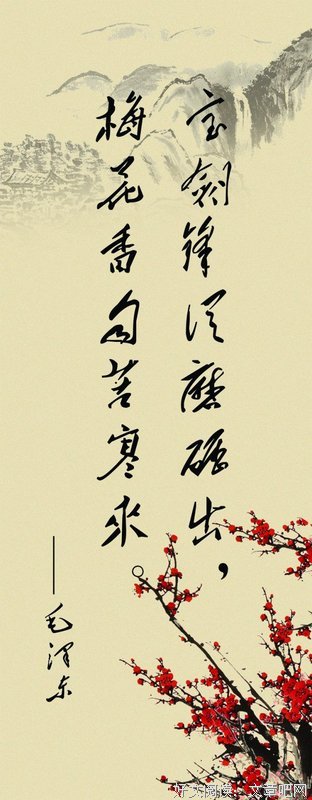 宝剑锋从磨砺出，
梅花香自苦寒来。
——毛泽东
好文阅读：文章吧网